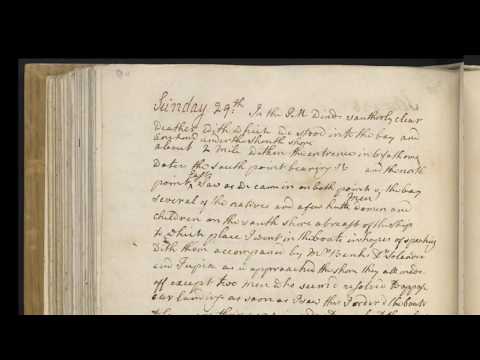 Sunday 29th In the PM Winds southerly clear
Weather With Which We stood into the bay and
Anchord under the South shore
about 2 Mile Within the entrence in 6 fathoms
Water the south point bearing SE and the north
point East Saw as We came in on both points of the bay
Several of the natives and a few hutts Men
women and
children on the south shore abreast of the ship
to Which place I went in the boats in hopes of speaking
With them accompaned by Mr Banks Dr Solander
and Tupia as we approached the shore they all made
off except two Men Who seem'd resolved to oppose
our landing as soon as I saw this I order'd the boats